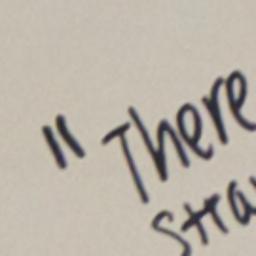 " There
stra